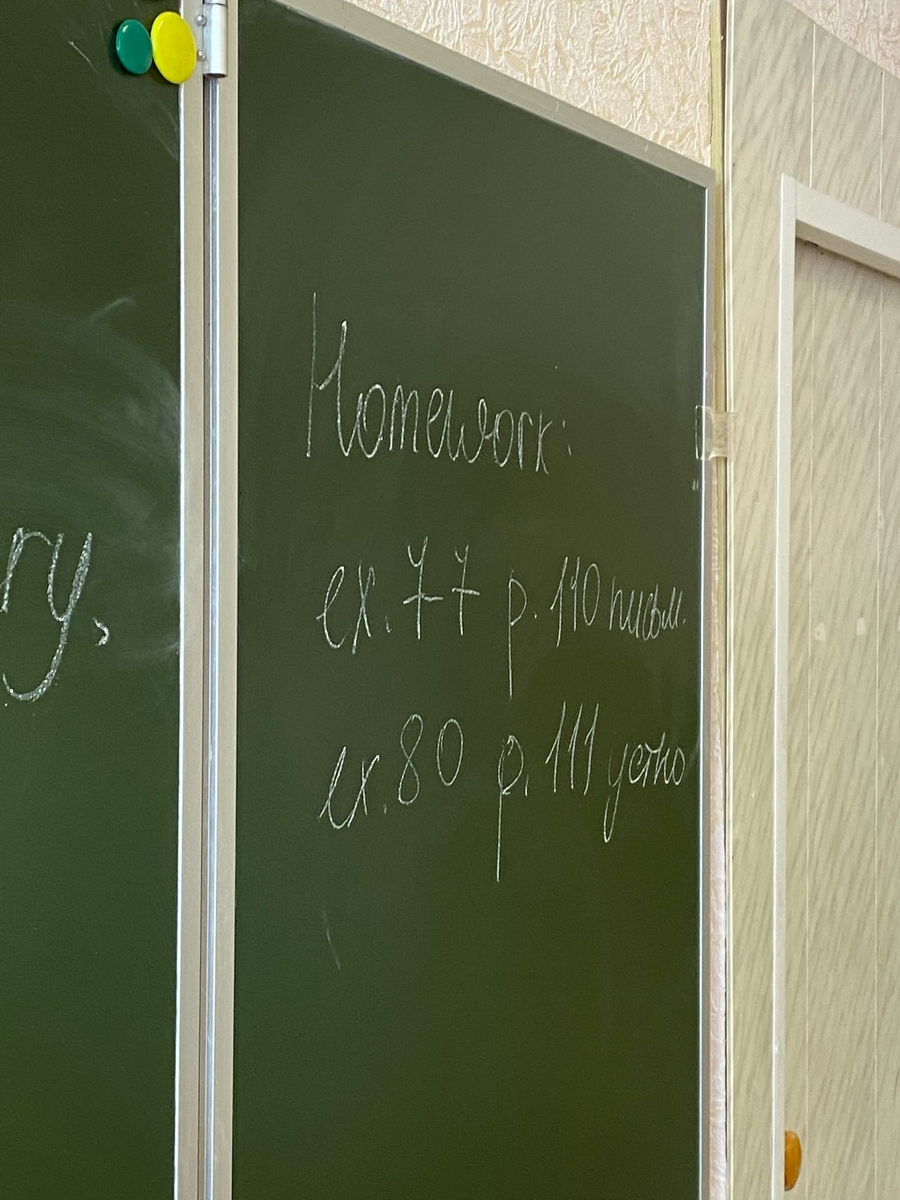 ry,
Homework:
ex. 77 p. 110 письм.
ex. 80 p. 111 устно